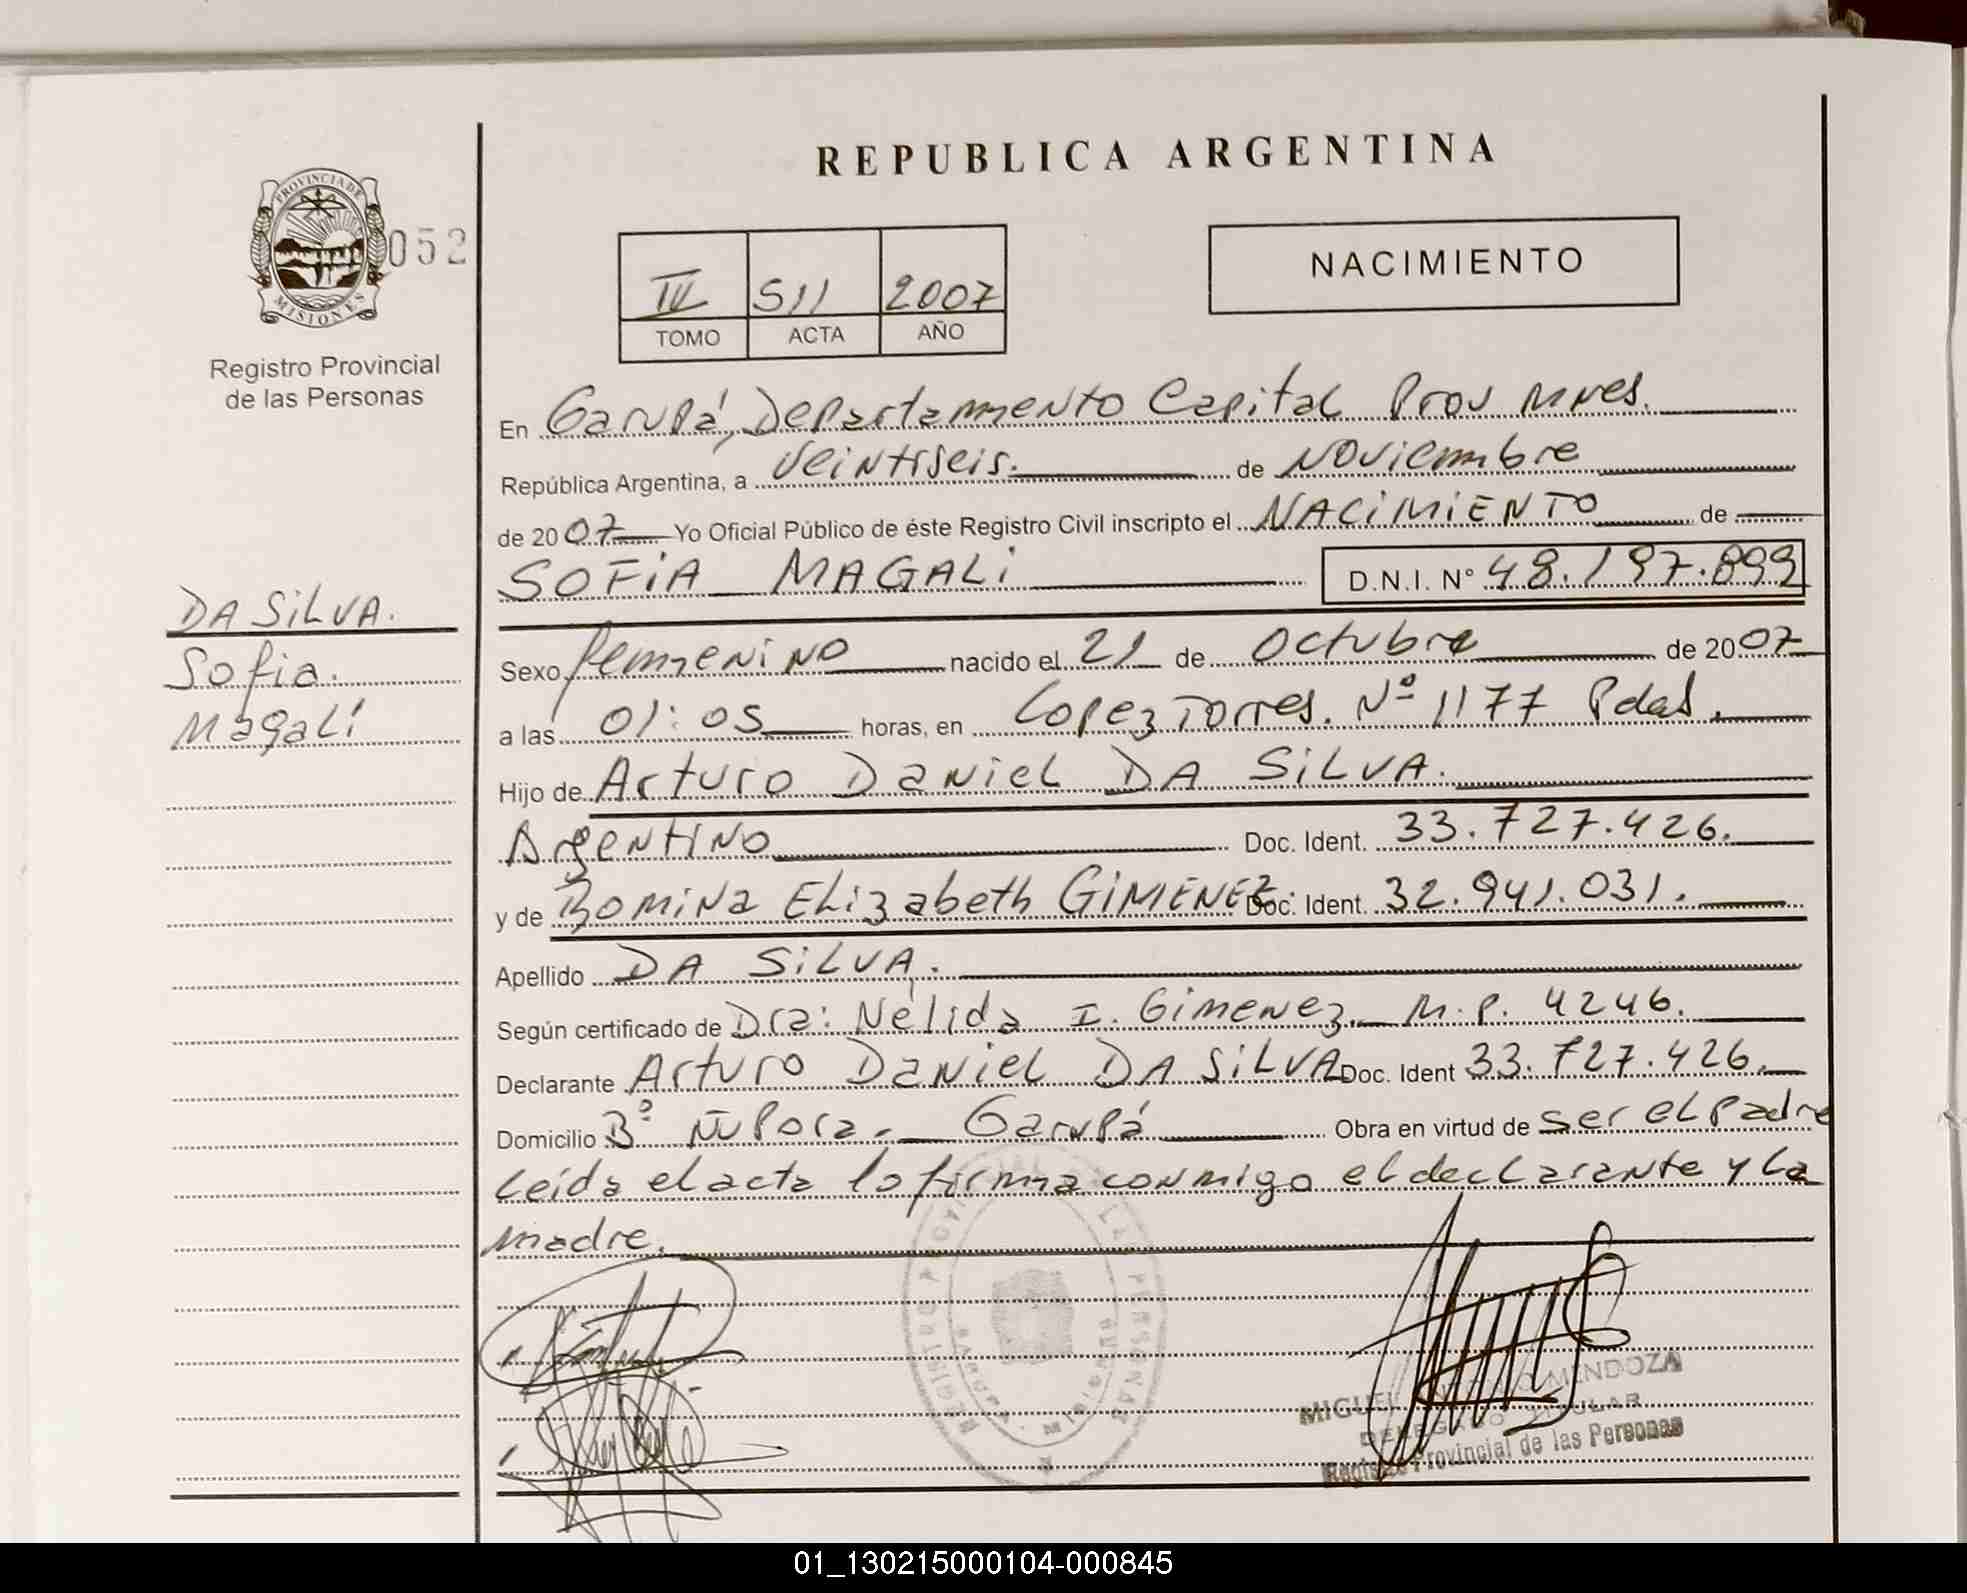 REPUBLICA ARGENTINA
PROVINCIA DE
MISIONES
052
Registro Provincial
de las Personas
IV 511 2007
TOMO ACTA AÑO
NACIMIENTO
En Garupá, Departamento Capital Prov Mnes.
República Argentina, a veintiseis. de Noviembre
de 2007 Yo Oficial Público de éste Registro Civil inscripto el NACIMIENTO de
SOFIA MAGALI D.N.I. N° 48.197.899
DA SILVA.
Sofia.
Magalí
Sexo femenino nacido el 21 de Octubre de 2007
a las 01:05 horas, en Lopez Torres. Nº 1177 Pdas.
Hijo de Arturo Daniel DA SILVA.
Argentino Doc. Ident. 33.727.426.
y de Romina Elizabeth GIMENEZ Doc. Ident. 32.941.031.
Apellido DA SILVA.
Según certificado de Dra: Nélida I. Gimenez. M.P. 4246.
Declarante Arturo Daniel DA SILVA Doc. Ident 33.727.426.
Domicilio Bº Ñu Pora. Garupá Obra en virtud de ser el padre
Leída el acta lo firma conmigo el declarante y la
madre.
MIGUEL MENDOZA
DELEGADO TITULAR
Registro Provincial de las Personas
01_130215000104-000845